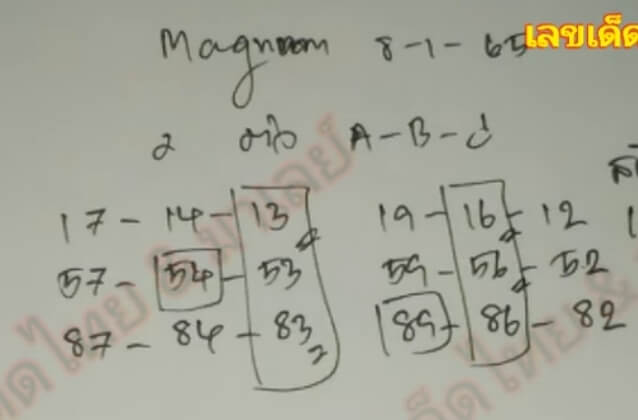 Magnum 8-1-65
เลขเด็ด
2 ตัว A-B-C
17-14-13 19-16-12
57-54-53 59-56-52
87-84-83 89-86-82